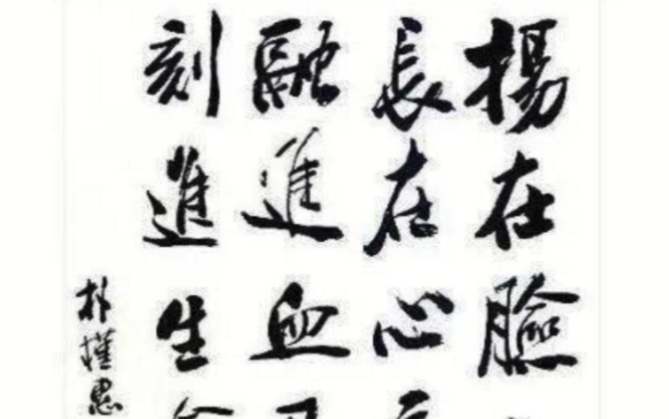 揚在臉
長在心
融進血
刻進生
朴槿惠